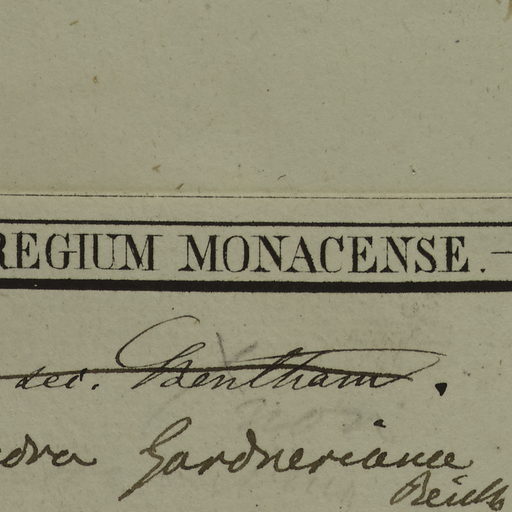 REGIUM MONACENSE.—
ded. Bentham.
dra Gardneriana